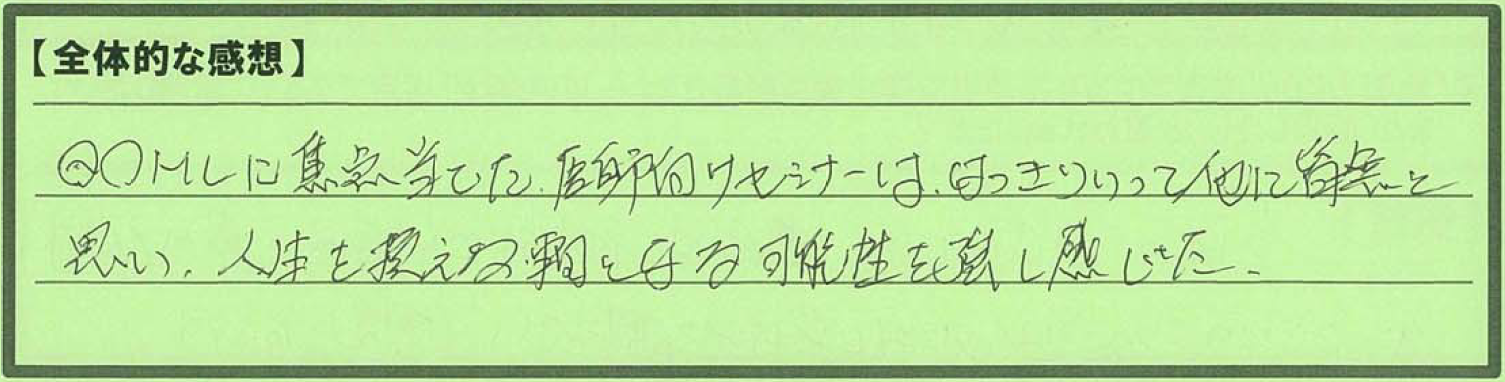 【全体的な感想】
QOMLに焦点当てた、医師向けセミナーは、はっきりいって他に皆無と
思い、人生を変える事となる可能性を強く感じた。